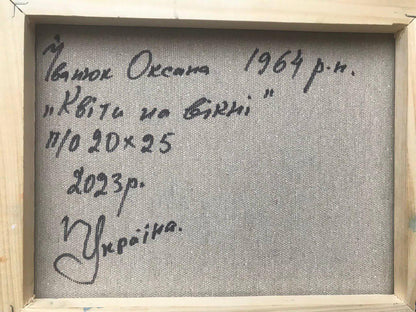 Іванюк Оксана 1964 р.н.
"Квіти на вікні"
п/о 20×25
2023р.
Україна.